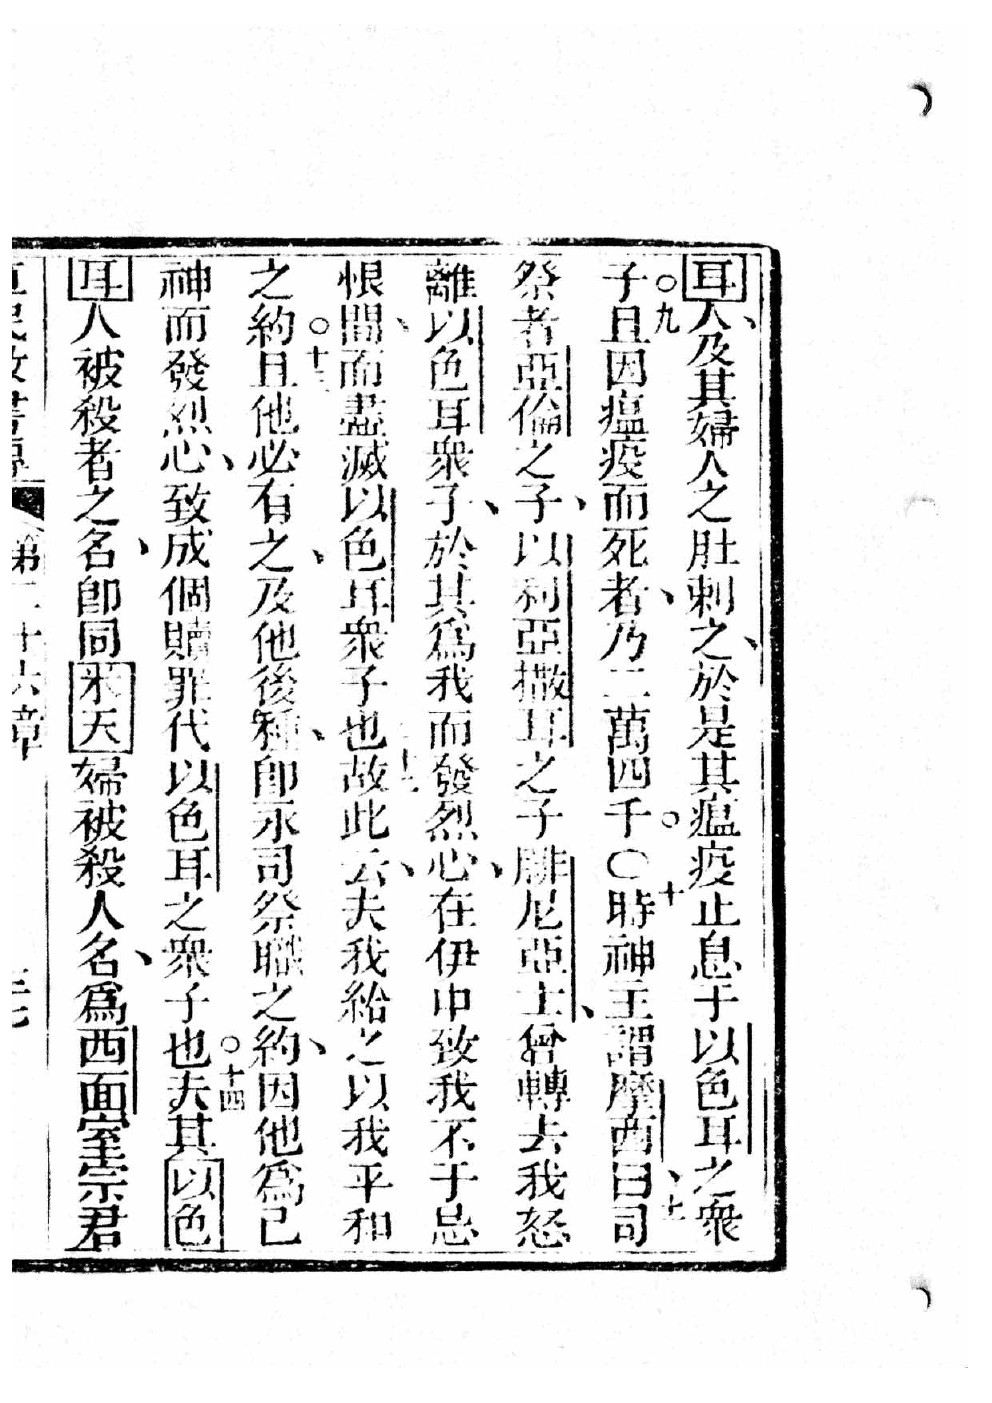 耳人及其婦人之肚刺之於是其瘟疫止息于以色耳之衆
○九
子且因瘟疫而死者乃二萬四千○時神主謂摩西曰司
○十 十一
祭者亞倫之子以利亞撒耳之子腓尼亞士曾轉去我怒
離以色耳衆子於其為我而發烈心在伊中致我不于忌
恨間而盡滅以色耳衆子也故此云夫我給之以我平和
十二
之約且他必有之及他後種卽永司祭職之約因他為己
○十三
神而發烈心致成個贖罪代以色耳之衆子也夫其以色
○十四
耳人被殺者之名卽同米天婦被殺人名為西面室宗君
第二十六章